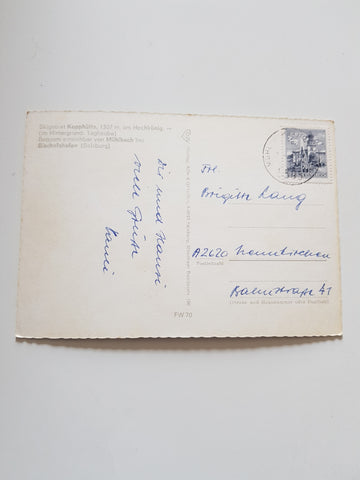 Skigebiet Kopphütte, 1307 m, am Hochkönig
(im Hintergrund: Taghaube)
Bequem erreichbar von Mühlbach bei
Bischofshofen (Salzburg)
Dir und Hansi
viele Grüße
FW 70
Fr.
Brigitte Lang
A2620 Neunkirchen
Postleitzahl
Bahnstraße 41
(Straße und Hausnummer oder Postfach)